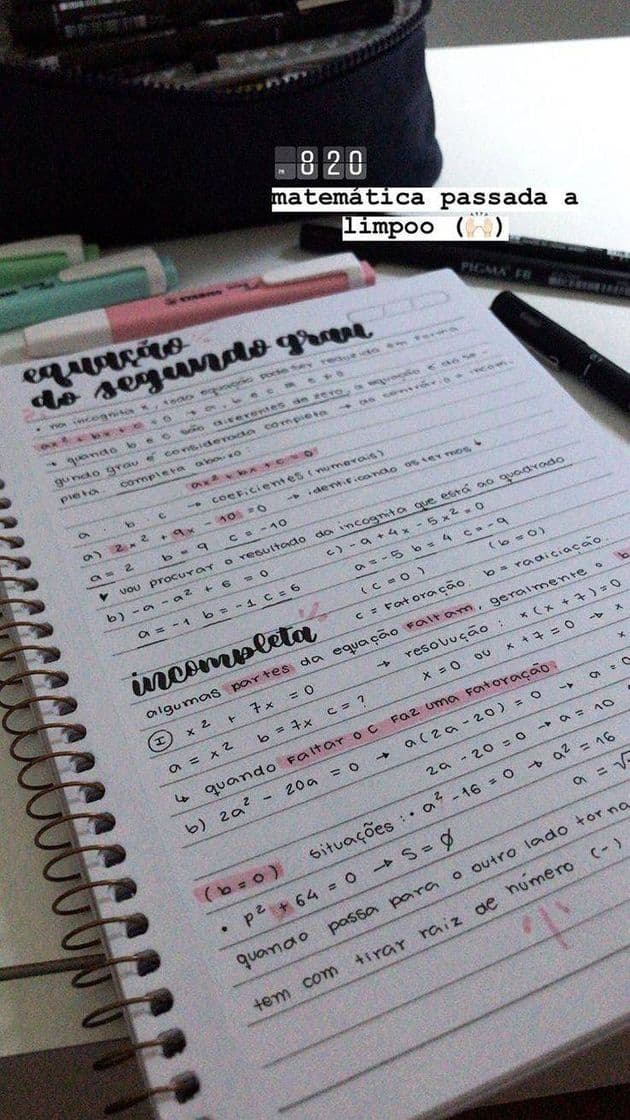 PM 8 20
matemática passada a
limpoo (🙌🏻)
PIGMA FB
equação
do segundo grau
• na incognita x, toda equação pode ser reduzida em forma
ax² + bx + c = 0 → a, b e c ∈
→ quando b e c são diferentes de zero, a equação é do se-
gundo grau é considerada completa → ao contrário = incom.
pleta. completa abaixo
ax² + bx + c = 0
a . b . c → coeficientes (numerais)
a) 2x² + 9x - 10 = 0 → identificando os termos ↓
a = 2 b = 9 c = -10
♥ vou procurar o resultado da incognita que está ao quadrado
b) -a - a² + 6 = 0 c) -9 + 4x - 5x² = 0
a = -1 b = -1 c = 6 a = -5 b = 4 c = -9
(c = 0) (b = 0)
incompleta c = Fatoração. b = radiciação.
algumas partes da equação Faltam, geralmente o b
I x² + 7x = 0 → resolução: x(x + 7) = 0
a = x² b = 7x c = ? x = 0 ou x + 7 = 0 → x
↳ quando FALTAR O C FAZ UMA FATORAÇÃO
b) 2a² - 20a = 0 → a(2a - 20) = 0 → a = 0
2a - 20 = 0 → a = 10
(b = 0) situações: • a² - 16 = 0 → a² = 16
a = √
• p² + 64 = 0 → S = ∅
quando passa para o outro lado torna
tem com tirar raiz de número (-)